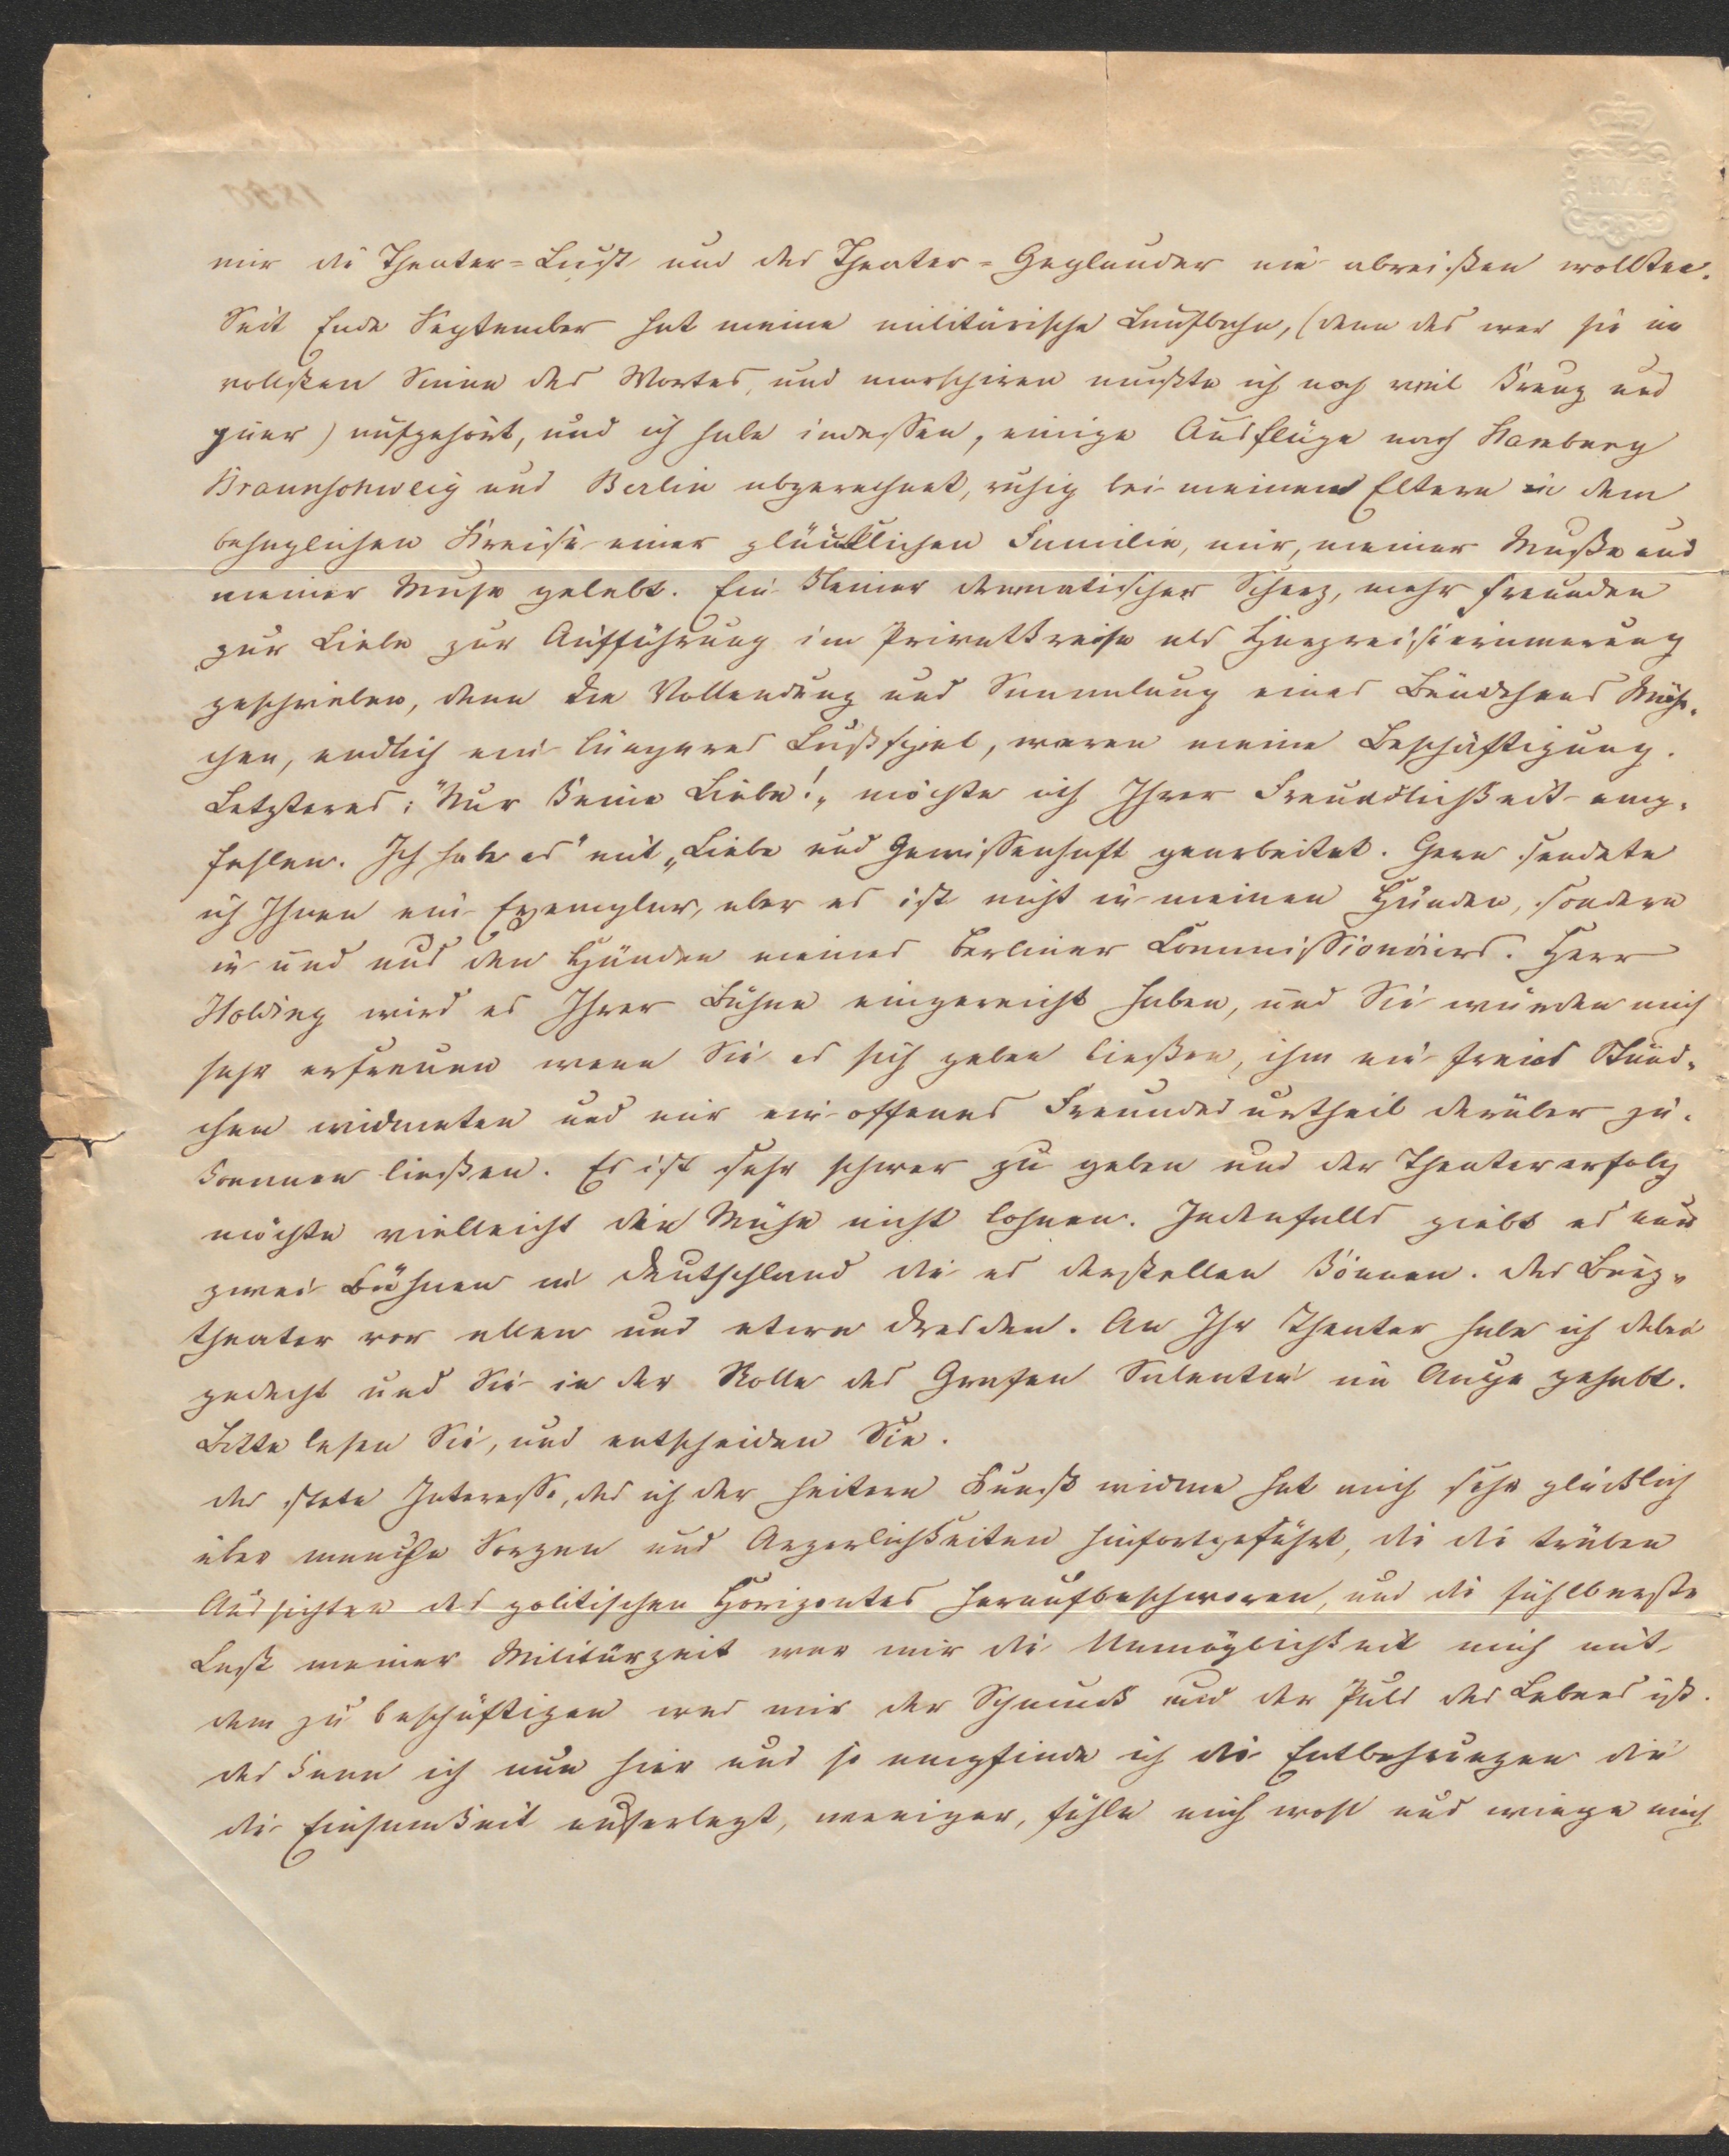 mir die Theater=Lust und der Theater=Geplauder nie abreißen wollten.
Seit Ende September hat meine militärische Laufbahn, (denn das war sie im
vollsten Sinne des Wortes, und marschiren mußte ich noch viel Kreuz und
quer) aufgehört, und ich habe indessen, einige Ausflüge nach Hamburg
Braunschweig und Berlin abgerechnet, ruhig bei meinen Eltern in dem
behaglichen Kreise einer glücklichen Familie, mir, meiner Muße und
meiner Muse gelebt. Ein kleiner dramatischer Scherz, mehr Freunden
zur Liebe zur Aufführung im Privatkreise als Harzreiseerinnerung
geschrieben, dann die Vollendung und Sammlung eines Bändchens Mähr-
chen, endlich ein längeres Lustspiel, waren meine Beschäftigung.
Letzteres: "Nur keine Liebe!„ möchte ich Ihrer Freundlichkeit emp-
fehlen. Ich habe es "mit„ Liebe und Gewissenhaft gearbeitet. Gern sendete
ich Ihnen ein Exemplar, aber es ist nicht in meinen Händen, sondern
in und aus den Händen meines Berliner Commissionairs. Herr
Holding wird es Ihrer Bühne eingereicht haben, und Sie würden mich
sehr erfreuen wenn Sie es sich geben ließen, ihm ein freies Stünd-
chen widmeten und mir ein offenes Freundesurtheil darüber zu-
kommen ließen. Es ist sehr schwer zu geben und der Theatererfolg
möchte vielleicht die Mühe nicht lohnen. Jedenfalls giebt es nur
zwei Bühnen in Deutschland die es darstellen können. Das Burg-
theater vor allen und etwa Dresden. An Ihr Theater habe ich dabei
gedacht und Sie in der Rolle des Grafen Salentin im Auge gehabt.
Bitte lesen Sie, und entscheiden Sie.
Das stete Interesse, das ich der heitern Kunst widme hat mich sehr glücklich
über manche Sorgen und Aergerlichkeiten hinfortgeführt, die die trüben
Aussichten des politischen Horizontes heraufbeschworen, und die fühlbarste
Last meiner Militärzeit war mir die Unmöglichkeit mich mit
dem zu beschäftigen was mir der Schmuck und der Puls des Lebens ist.
Das kann ich nun hier und so empfinde ich die Entbehrungen die
die Einsamkeit auferlegt, weniger, fühle mich wohl und wiege mich